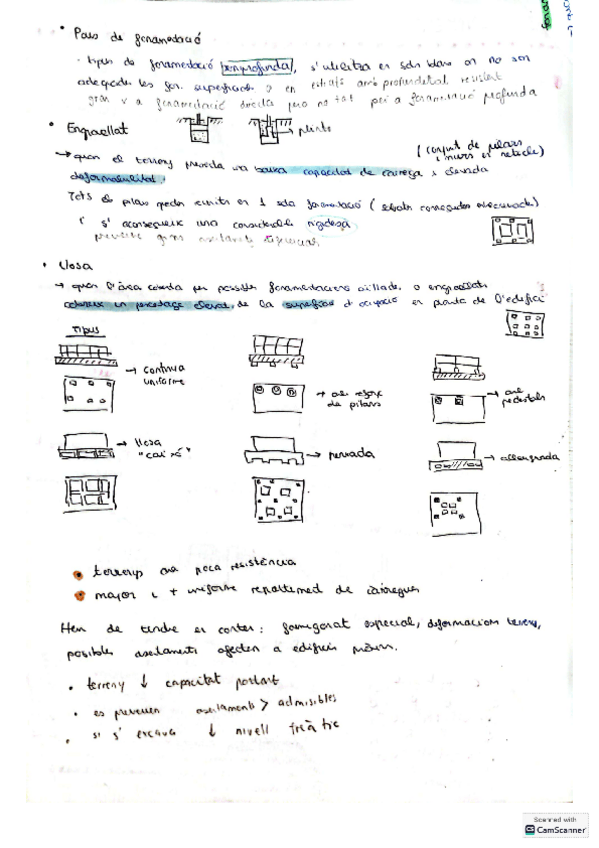 • Pous de fonamentació
· tipus de fonamentació semiprofunda, s'utilitza en sòls blans on no son
adequades les fon. superficials y en estrats amb profunditat resistent
gran x a fonamentació directa pero no tat per a fonamentació profunda
• Engraellat
→ plints
→ quan el terreny presenta una baixa capacitat de càrrega i elevada
(conjunt de pilars i murs en reticle)
deformabilitat.
Tots els pilars queden units en 1 sola fonamentació
s' aconsegueix una considerable rigidesa
• Llosa
→ quan l'àrea coberta per possibles fonamentacions aïllades o engraellats
cobreix un percentage elevat de la superficie d'ocupació en planta de l'edifici
TIPUS
→ continua
uniforme
→ amb reforç
de pilars
→ amb
pedestals
→ llosa
"caixó"
→ nervada
→ alleugerida
• terrenys amb poca resistència
• major i + uniforme repartiment de càrregues
Hem de tindre en conter: formigonat especial, deformacions terreny,
possibles assentaments afecten a edificis
• terreny ↓ capacitat portant
• es preveuen assentaments > admisibles
• si s' excava ↓ nivell freàtic
Scanned with
CamScanner